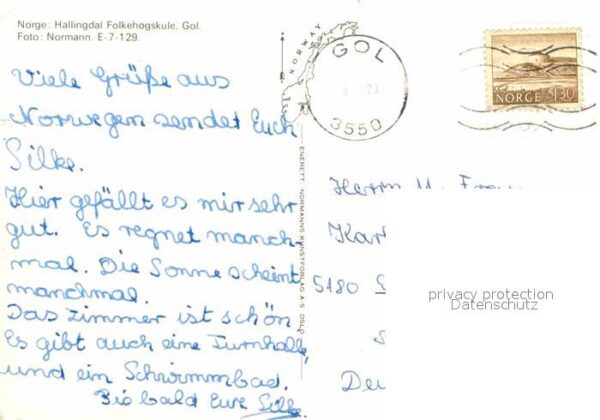 Norge: Hallingdal Folkehøgskule, Gol.
Foto: Normann. E-7-129.
Viele Grüße aus
Norwegen sendet Euch
Silke.
Hier gefällt es mir sehr
gut. Es regnet manch-
mal. Die Sonne scheint
manchmal.
Das Zimmer ist schön
Es gibt auch eine Turnhalle,
und ein Schwimmbad.
Bis bald Eure Silke
ENERETT NORMANNS KUNSTFORLAG A·S OSLO
NORWAY
GOL
3550
NORGE 1,30
Herrn U.
5180
privacy protection
Datenschutz